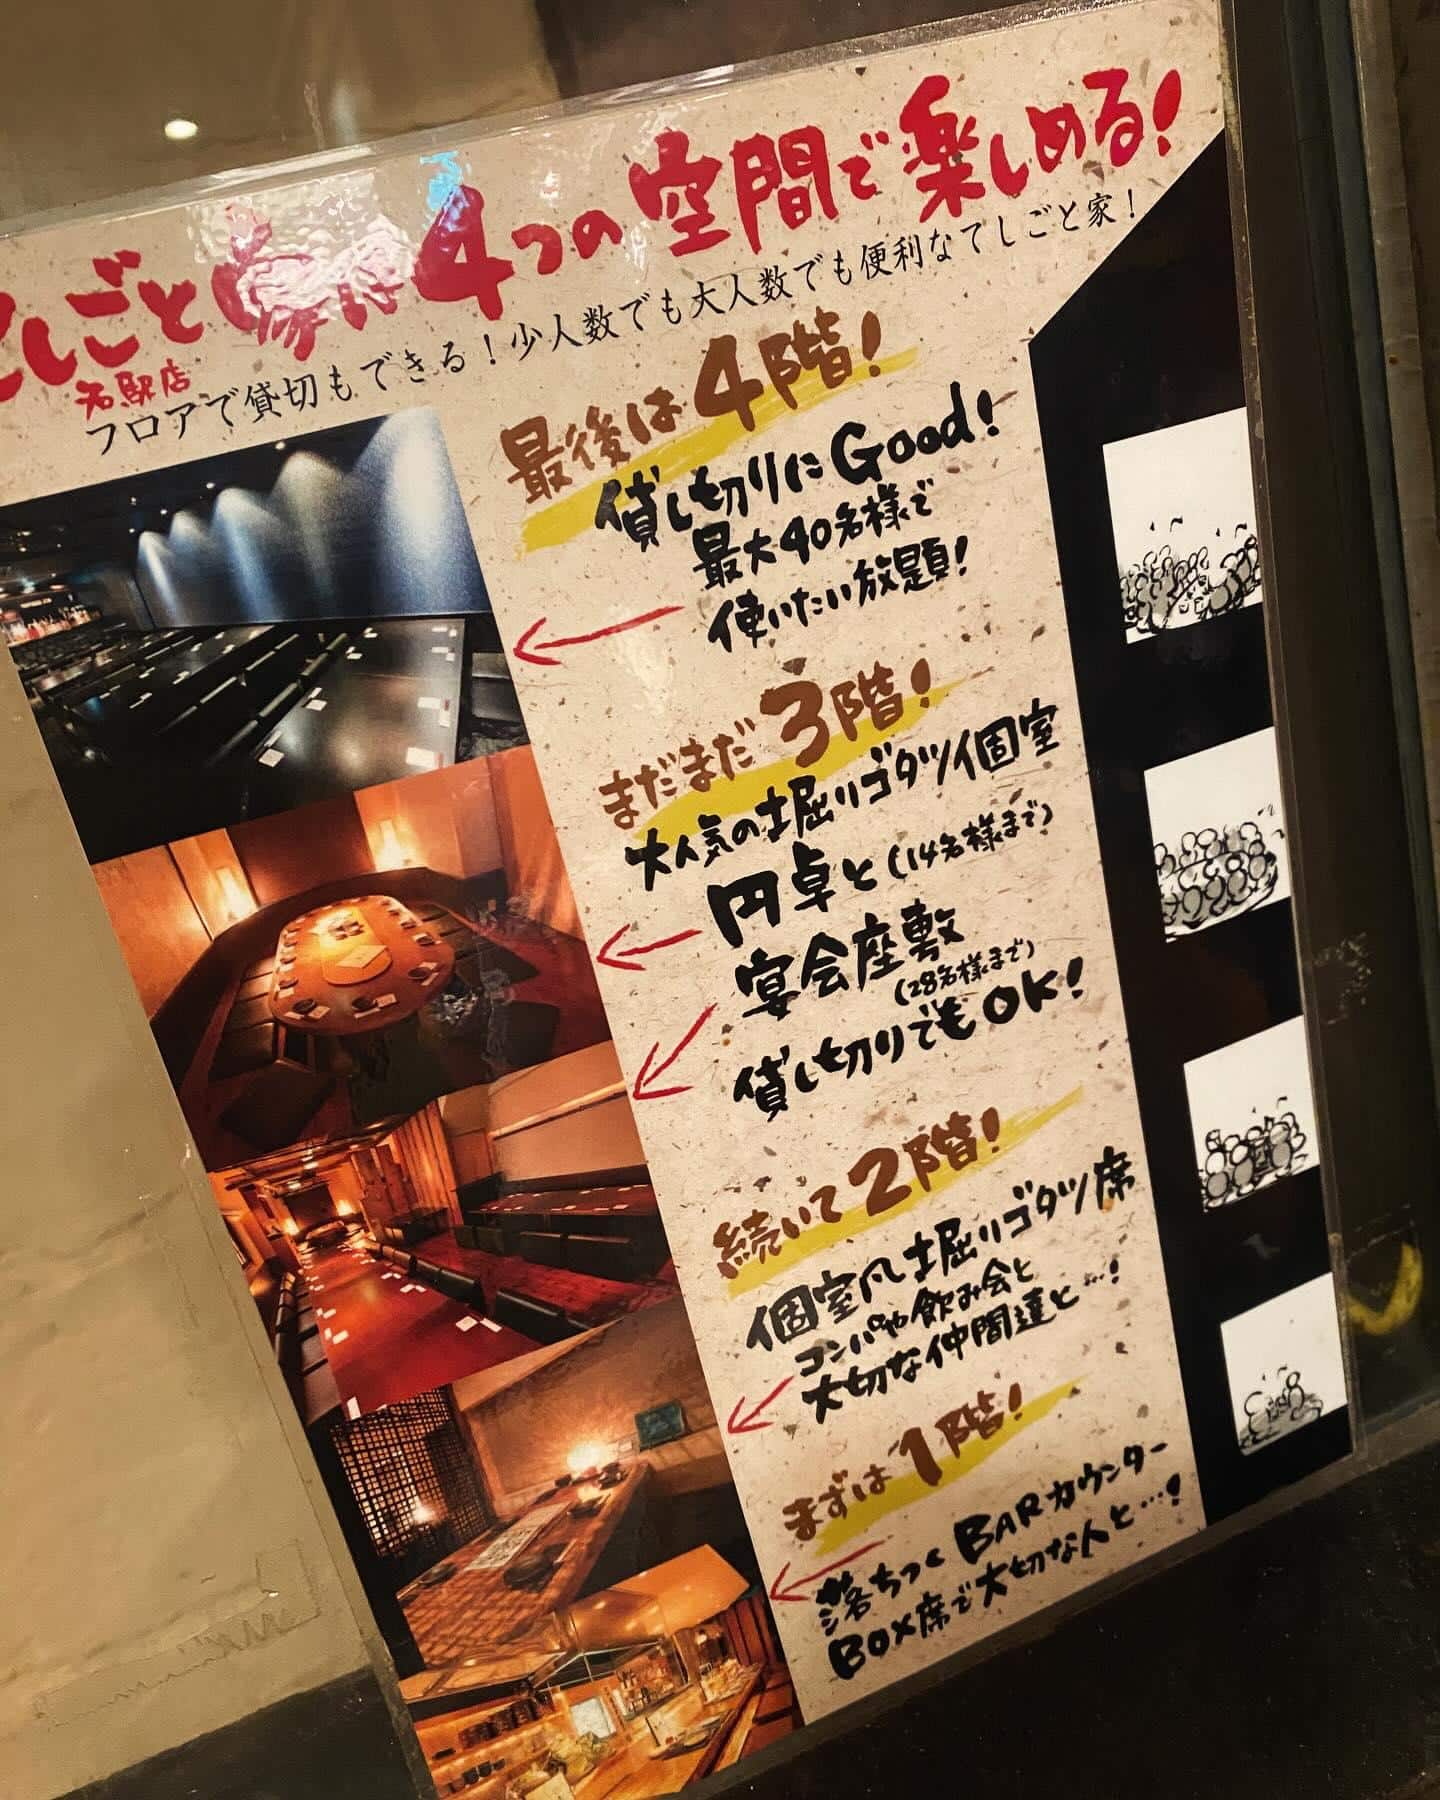 てしごと家は4つの空間で楽しめる!
名駅店
フロアで貸切もできる!少人数でも大人数でも便利なてしごと家!
最後は4階!
貸し切りにGood!
最大40名様で
使いたい放題!
まだまだ3階!
大人気の掘りゴタツ個室
円卓と(14名様まで)
宴会座敷
(28名様まで)
貸し切りでもOK!
続いて2階!
個室風掘りゴタツ席
コンパや飲み会と
大切な仲間達と…!
まずは1階!
落ちつくBARカウンター
BOX席で大切な人と…!